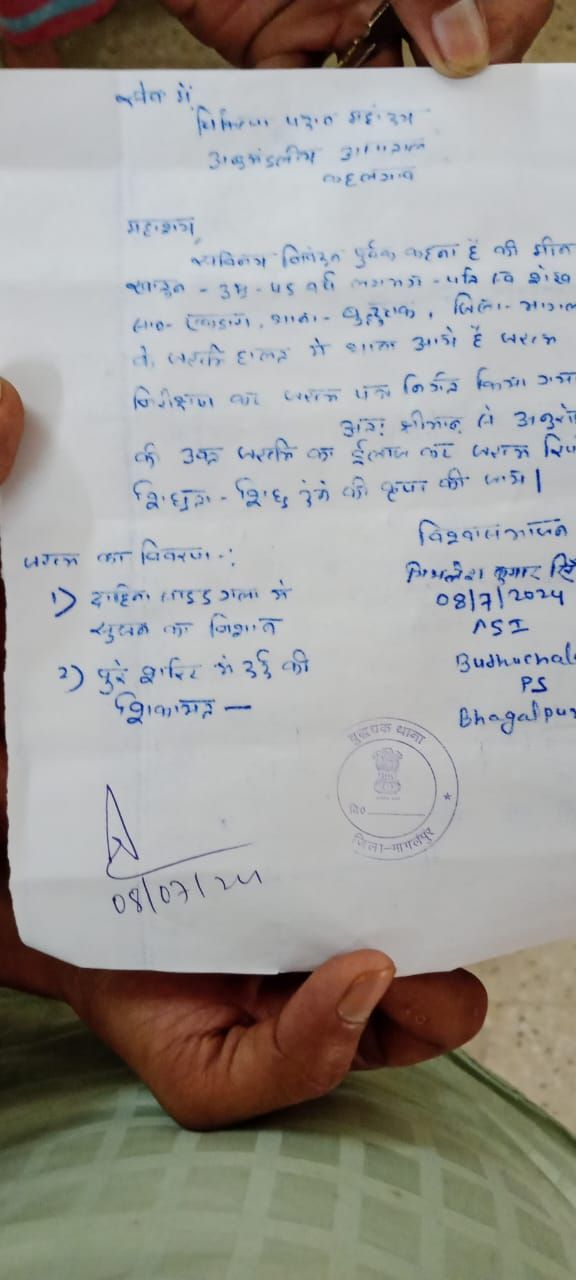 सेवा में,
चिकित्सा पदा० महोदय
अनुमंडलीय अस्पताल
कहलगांव
महाशय,
सविनय निवेदन पूर्वक कहना है की
उम्र- वर्ष लगभग- पति स्व० शेख
सा०- एकडारा, थाना- बुद्धुचक, जिला- भागल
के जख्मी हालत में थाना आये हैं जख्म
निरीक्षण कर जख्म पत्र निर्गत किया गया
अतः श्रीमान् से अनुरो
की उक्त जख्मी का ईलाज कर जख्म रिपो
शिघ्र- शिघ्र देने की कृपा की जाय।
विश्वासभाजन
जख्म का विवरण:-
मिथलेश कुमार सिं
1) दाहिना साइड गला में
08/7/2024
सुजन का निशान
ASI
2) पुरे शरिर में दर्द की
Budhuchak
PS
शिकायत —
Bhagalpur
बुद्धूचक थाना
दि०
जिला-भागलपुर
08/07/24